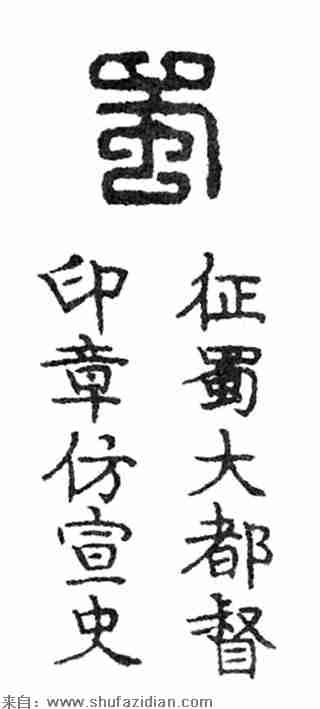 蜀
征蜀大都督
印章仿宣史
来自：www.shufazidian.com